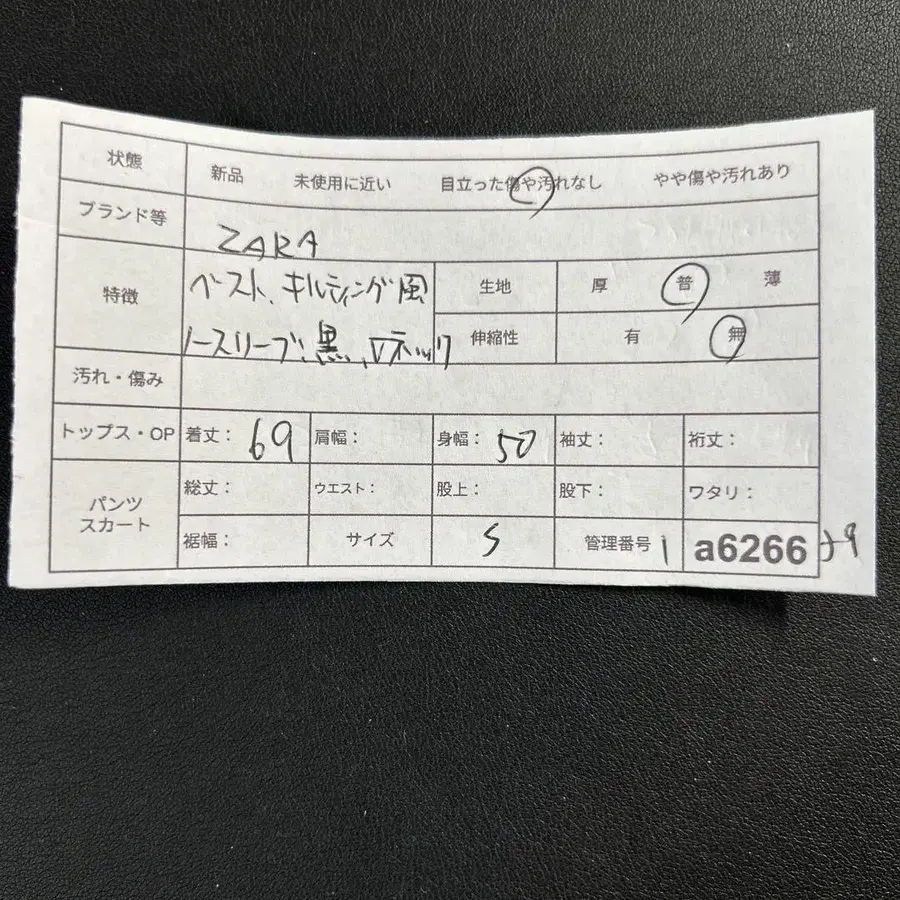 状態 新品 未使用に近い 目立った傷や汚れなし やや傷や汚れあり
ブランド等 ZARA
特徴 ベスト、キルティング風 生地 厚 普 薄
ノースリーブ、黒、Vネック 伸縮性 有 無
汚れ・傷み
トップス・OP 着丈: 69 肩幅: 身幅: 50 袖丈: 裄丈:
パンツ 総丈: ウエスト: 股上: 股下: ワタリ:
スカート
裾幅: サイズ S 管理番号 1 a6266